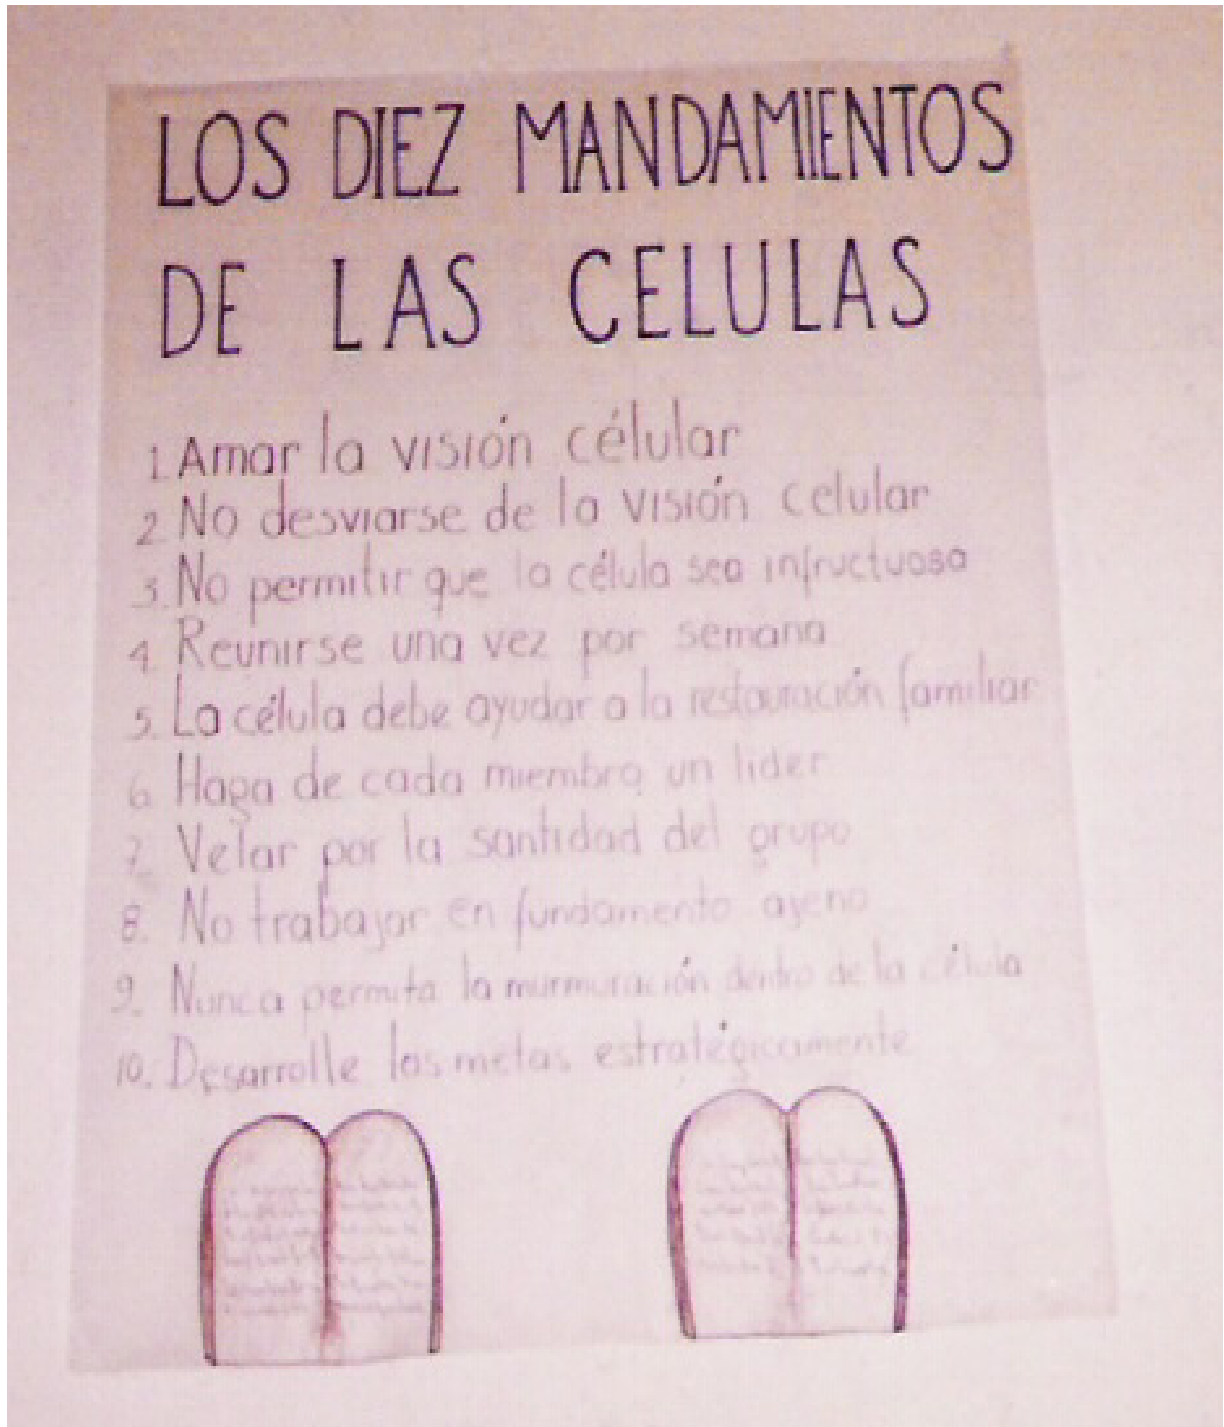 LOS DIEZ MANDAMIENTOS
DE LAS CELULAS
1. Amar la visión célular
2. No desviarse de la visión celular
3. No permitir que la célula sea infructuosa
4. Reunirse una vez por semana
5. La célula debe ayudar a la restauración familiar
6. Haga de cada miembro un lider
7. Velar por la santidad del grupo
8. No trabajar en fundamento ajeno
9. Nunca permita la murmuración dentro de la célula
10. Desarrolle las metas estratégicamente